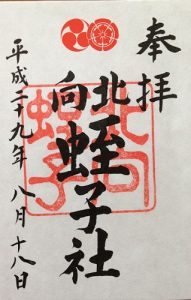 奉拝
北向蛭子社
平成二十九年八月十八日
北向
蛭子